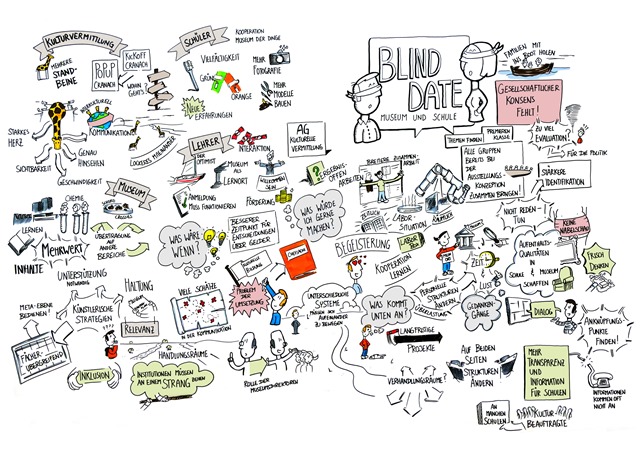 KULTURVERMITTLUNG
MEHRERE
STAND-
BEINE
POP UP
CRANACH
KICKOFF
CRANACH
WOHIN
GEHT'S
STRUKTUREL
STARKES
HERZ
KOMMUNIKATION
GENAU
HINSEHEN
SICHTBARKEIT
GESCHWINDIGKEIT
LOCKERES MITEINANDER
SCHÜLER
KOOPERATION
MUSEUM DER DINGE
VIELFÄLTIGKEIT
GRÜN
ORANGE
NEUE
ERFAHRUNGEN
MEHR
FOTOGRAFIE
MEHR
MODELLE
BAUEN
LEHRER
DER
OPTIMIST
INTERAKTION
MUSEUM
ALS
LERNORT
WILLKOMMEN
SEIN
ANMELDUNG
MUSS FUNKTIONIEREN
FÖRDERUNG
AG
KULTURELLE
VERMITTLUNG
BLIND
DATE
MUSEUM UND SCHULE
FAMILIEN MIT
INS BOOT HOLEN
GESELLSCHAFTLICHER
KONSENS
FEHLT!
ZU VIEL
EVALUATION
FÜR DIE POLITIK
THEMEN FINDEN
PREMIEREN
KLASSE
ALLE GRUPPEN
BEREITS BEI
DER
AUSSTELLUNGS-
KONZEPTION
ZUSAMMEN BRINGEN!
STÄRKERE
IDENTIFIKATION
ERGEBNIS-
OFFEN
ARBEITEN
BREITERE ZUSAMMEN-
ARBEIT
LABOR-
SITUATION
RÄUMLICH
NICHT REDEN-
TUN
KEINE
NABELSCHAU
MUSEUM
CHEMIE
LERNEN
MEHRWERT
INHALTE
ÜBERTRAGUNG
AUF
ANDERE
BEREICHE
WAS WÄRE
WENN?
BESSERER
ZEITPUNKT FÜR
ENTSCHEIDUNGEN
ÜBER GELDER
WAS WÜRDE
ICH GERNE
MACHEN!
BEGEISTERUNG
LABOR
KOOPERATION
LERNEN
ZEIT
LUST
AUFENTHALTS-
QUALITÄTEN
IN
SCHULE & MUSEUM
SCHAFFEN
FRISCH
DENKEN
UNTERSTÜTZUNG
NOTWENDIG
META-EBENE
BEDIENEN!
KÜNSTLERISCHE
STRATEGIEN
HALTUNG
RELEVANZ
FÄCHER-
ÜBERGREIFEND
VIELE SCHÄTZE
IN DER KOMMUNIKATION
PROBLEM DER
UMSETZUNG
UNTERSCHIEDLICHE
SYSTEME
MÜSSEN SICH
AUFEINANDER
ZU BEWEGEN
WAS KOMMT
UNTEN AN!
PERSONELLE
STRUKTUREN
ÄNDERN
ÜBERLASTUNG
GEDANKEN
GÄNGE
DIALOG
ANKNÜPFUNGS-
PUNKTE
FINDEN!
LANGFRISTIGE
PROJEKTE
HANDLUNGSRÄUME
INKLUSION
INSTITUTIONEN MÜSSEN
AN EINEM STRANG ZIEHEN
ROLLE DER
MUSEUMSDIREKTOREN
VERHANDLUNGSRÄUME?
AUF BEIDEN
SEITEN
STRUKTUREN
ÄNDERN
MEHR
TRANSPARENZ
UND
INFORMATION
FÜR SCHULEN
INFORMATIONEN
KOMMEN OFT
NICHT AN
AN
MANCHEN
SCHULEN
KULTUR-
BEAUFTRAGTE